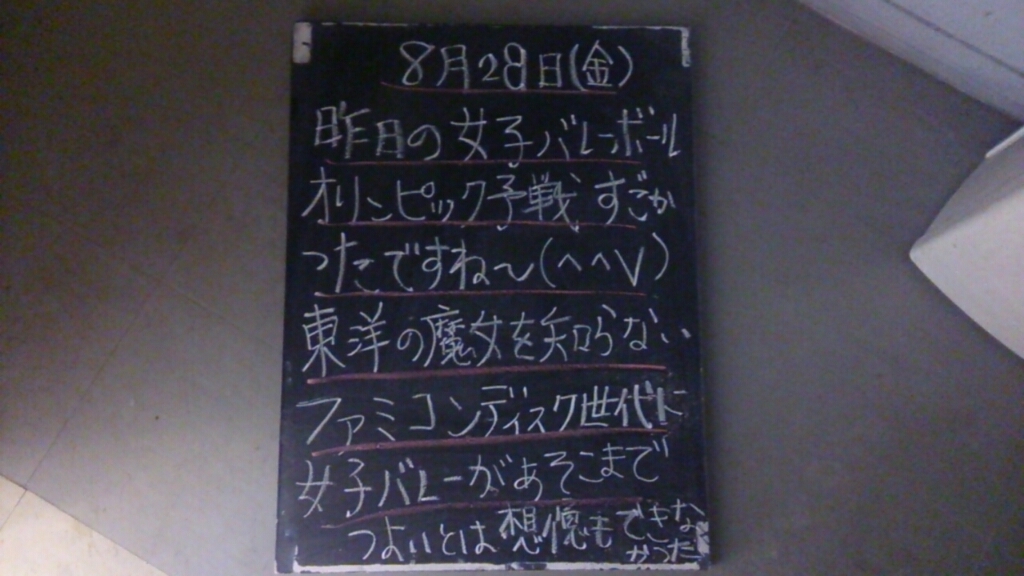 8月28日(金)
昨日の女子バレーボール
オリンピック予戦 すごか
ったですね～(^^V)
東洋の魔女を知らない
ファミコンディスク世代に
女子バレーがあそこまで
つよいとは想憶もできな
かった